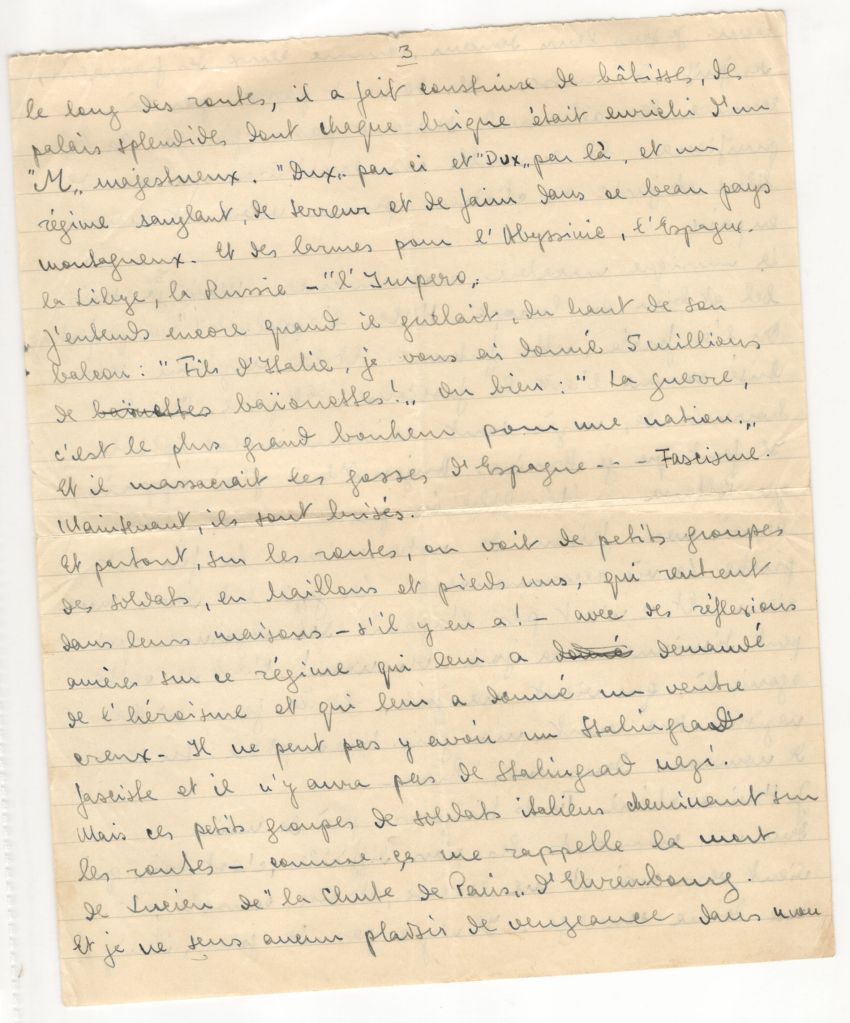 3
le long des routes, il a fait construire de bâtisses, des
palais splendides dont chaque brique était enrichi d'un
"M„ majestueux. "Dux„ par ci et "Dux„ par là, et un
régime sanglant, de terreur et de faim dans ce beau pays
montagneux. Et des larmes pour l'Abyssinie, l'Espagne.
la Libye, la Russie – "l'Impero„
J'entends encore quand il guelait, du haut de son
balcon : "Fils d'Italie, je vous ai donné 5 millions
de baïonettes baïonettes!„ ou bien : "La guerre,
c'est le plus grand bonheur pour une nation.„
Et il massacrait les gosses d'Espagne - - - Fascisme.
Maintenant, ils sont brisés.
Et partout, sur les routes, on voit de petits groupes
des soldats, en haillons et pieds nus, qui rentrent
dans leurs maisons – s'il y en a! – avec des réflexions
amères sur ce régime qui leur a donné demandé
de l'héroisme et qui leur a donné un ventre
creux – Il ne peut pas y avoir un Stalingrad
fasciste et il n'y aura pas de Stalingrad nazi.
Mais ces petits groupes de soldats italiens cheminant sur
les routes – comme ça me rappelle la mort
de Lucien de "la Chute de Paris„ d'Ehrenbourg.
Et je ne sens aucun plaisir de vengeance dans mon